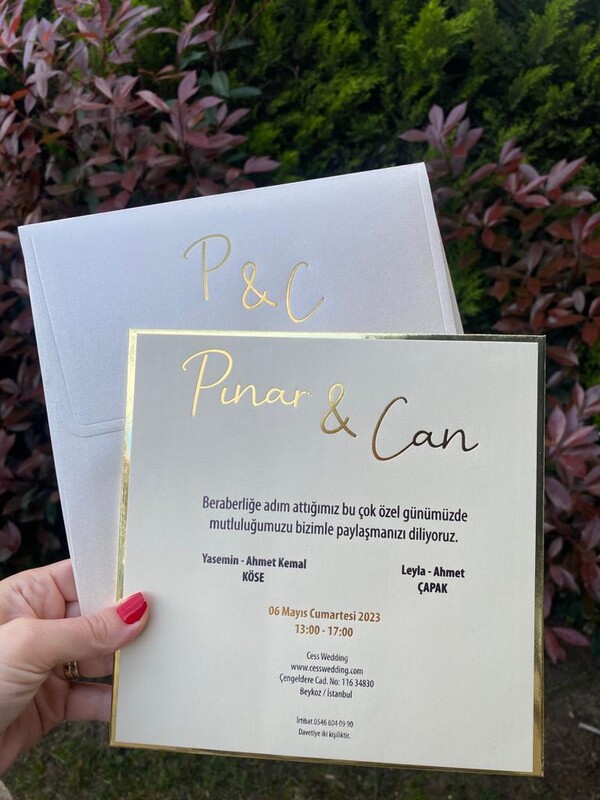 P & C
Pınar & Can
Beraberliğe adım attığımız bu çok özel günümüzde
mutluluğumuzu bizimle paylaşmanızı diliyoruz.
Yasemin - Ahmet Kemal
KÖSE
Leyla - Ahmet
ÇAPAK
06 Mayıs Cumartesi 2023
13:00 - 17:00
Cess Wedding
www.cesswedding.com
Çengeldere Cad. No: 116 34830
Beykoz / İstanbul
İrtibat 0546 804 09 90
Davetiye iki kişiliktir.